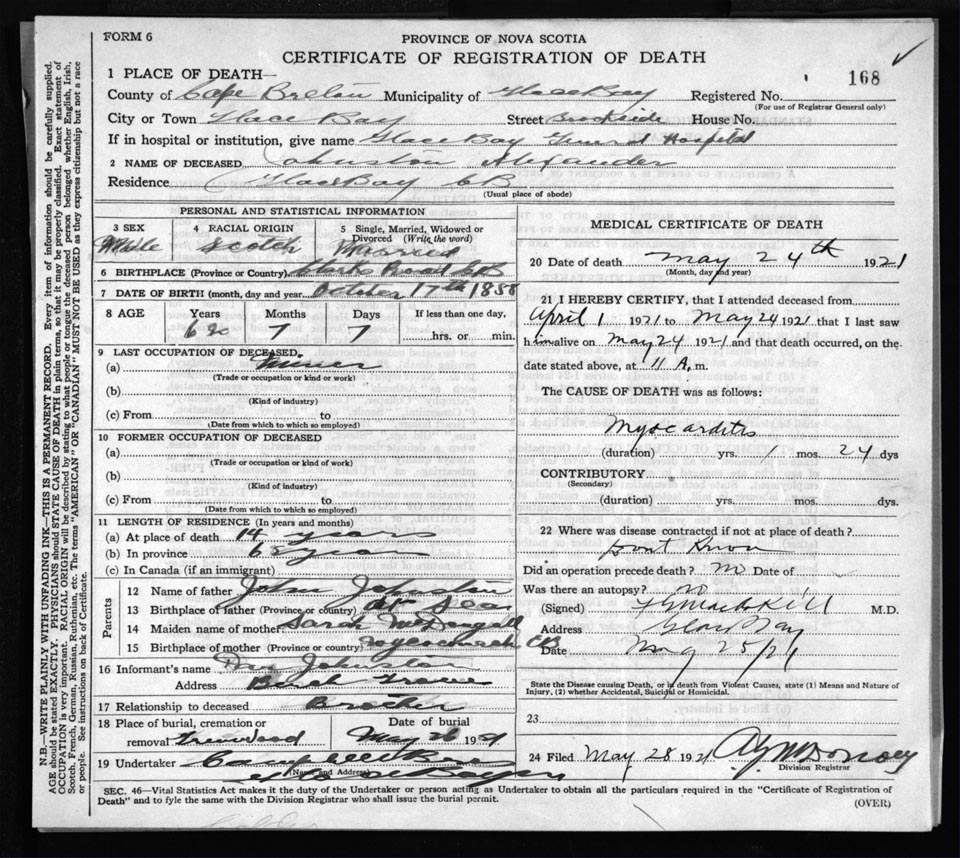 FORM 6
PROVINCE OF NOVA SCOTIA
CERTIFICATE OF REGISTRATION OF DEATH
168
1 PLACE OF DEATH—
County of Cape Breton Municipality of Glace Bay Registered No.
(For use of Registrar General only)
City or Town Glace Bay Street Brookside House No.
If in hospital or institution, give name Glace Bay General Hospital
2 NAME OF DECEASED Johnston Alexander
Residence Glace Bay CB
(Usual place of abode)
PERSONAL AND STATISTICAL INFORMATION
3 SEX 4 RACIAL ORIGIN 5 Single, Married, Widowed or Divorced (Write the word)
Male Scotch Married
6 BIRTHPLACE (Province or Country) Road CB
7 DATE OF BIRTH (month, day and year) October 17th 1858
8 AGE Years Months Days If less than one day,
62 7 7 hrs. or min.
9 LAST OCCUPATION OF DECEASED
(a) Miner
(Trade or occupation or kind or work)
(b)
(Kind of industry)
(c) From to
(Date from which to which so employed)
10 FORMER OCCUPATION OF DECEASED
(a)
(Trade or occupation or kind of work)
(b)
(Kind of industry)
(c) From to
(Date from which to which so employed)
11 LENGTH OF RESIDENCE (In years and months)
(a) At place of death 14 years
(b) In province years
(c) In Canada (if an immigrant)
Parents
12 Name of father John Johnston
13 Birthplace of father (Province or country) at Sea
14 Maiden name of mother Sarah McDougall
15 Birthplace of mother (Province or country) Whycocomagh CB
16 Informant's name Johnston
Address Beech Grove
17 Relationship to deceased Brother
18 Place of burial, cremation or removal Greenwood Date of burial May 26 1921
19 Undertaker
(Name and Address)
MEDICAL CERTIFICATE OF DEATH
20 Date of death May 24th 1921
(Month, day and year)
21 I HEREBY CERTIFY, that I attended deceased from
April 1 1921 to May 24 1921 that I last saw
him alive on May 24 1921 and that death occurred, on the
date stated above, at 11 A. m.
The CAUSE OF DEATH was as follows:
Myocarditis
(duration) yrs. 1 mos. 24 dys
CONTRIBUTORY
(Secondary)
(duration) yrs. mos. dys.
22 Where was disease contracted if not at place of death?
Dont Know
Did an operation precede death? no Date of
Was there an autopsy? no
(Signed) M.D.
Address Glace Bay
Date May 25/21
State the Disease causing Death, or in death from Violent Causes, state (1) Means and Nature of
Injury, (2) whether Accidental, Suicidal or Homicidal.
23
24 Filed May 28 1921
Division Registrar
SEC. 46—Vital Statistics Act makes it the duty of the Undertaker or person acting as Undertaker to obtain all the particulars required in the "Certificate of Registration of
Death" and to fyle the same with the Division Registrar who shall issue the burial permit.
(OVER)
N.B.—WRITE PLAINLY WITH UNFADING INK—THIS IS A PERMANENT RECORD. Every item of information should be carefully supplied.
AGE should be stated EXACTLY. PHYSICIANS should STATE CAUSE OF DEATH in plain terms, so that it may be properly classified. Exact statement of
OCCUPATION is very important. RACIAL ORIGIN will be described by stating to what people or tongue the deceased person belonged, whether English, Irish,
Scotch, French, German, Russian, Ruthenian, etc. The terms "AMERICAN" OR "CANADIAN" MUST NOT BE USED as they express citizenship but not a race
or people. See instructions on back of Certificate.